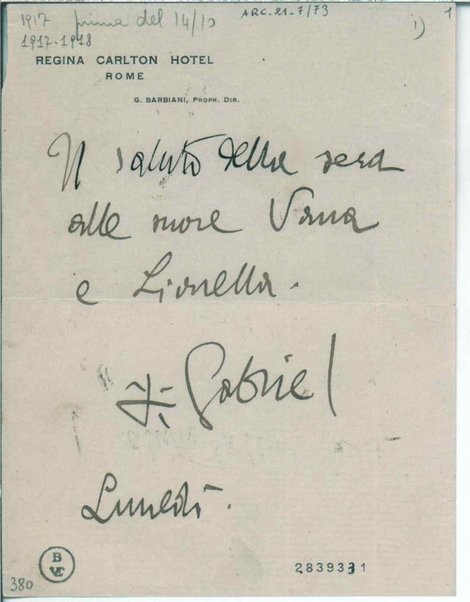 1917 prima del 14/10
ARC.21-7/73
1
1)
1917-1918
REGINA CARLTON HOTEL
ROME
G. BARBIANI, PROPR. DIR.
Il saluto della sera
alle suore Vana
e Lionella.
Gabriel
Lunedì.
B
VE
380
2839331